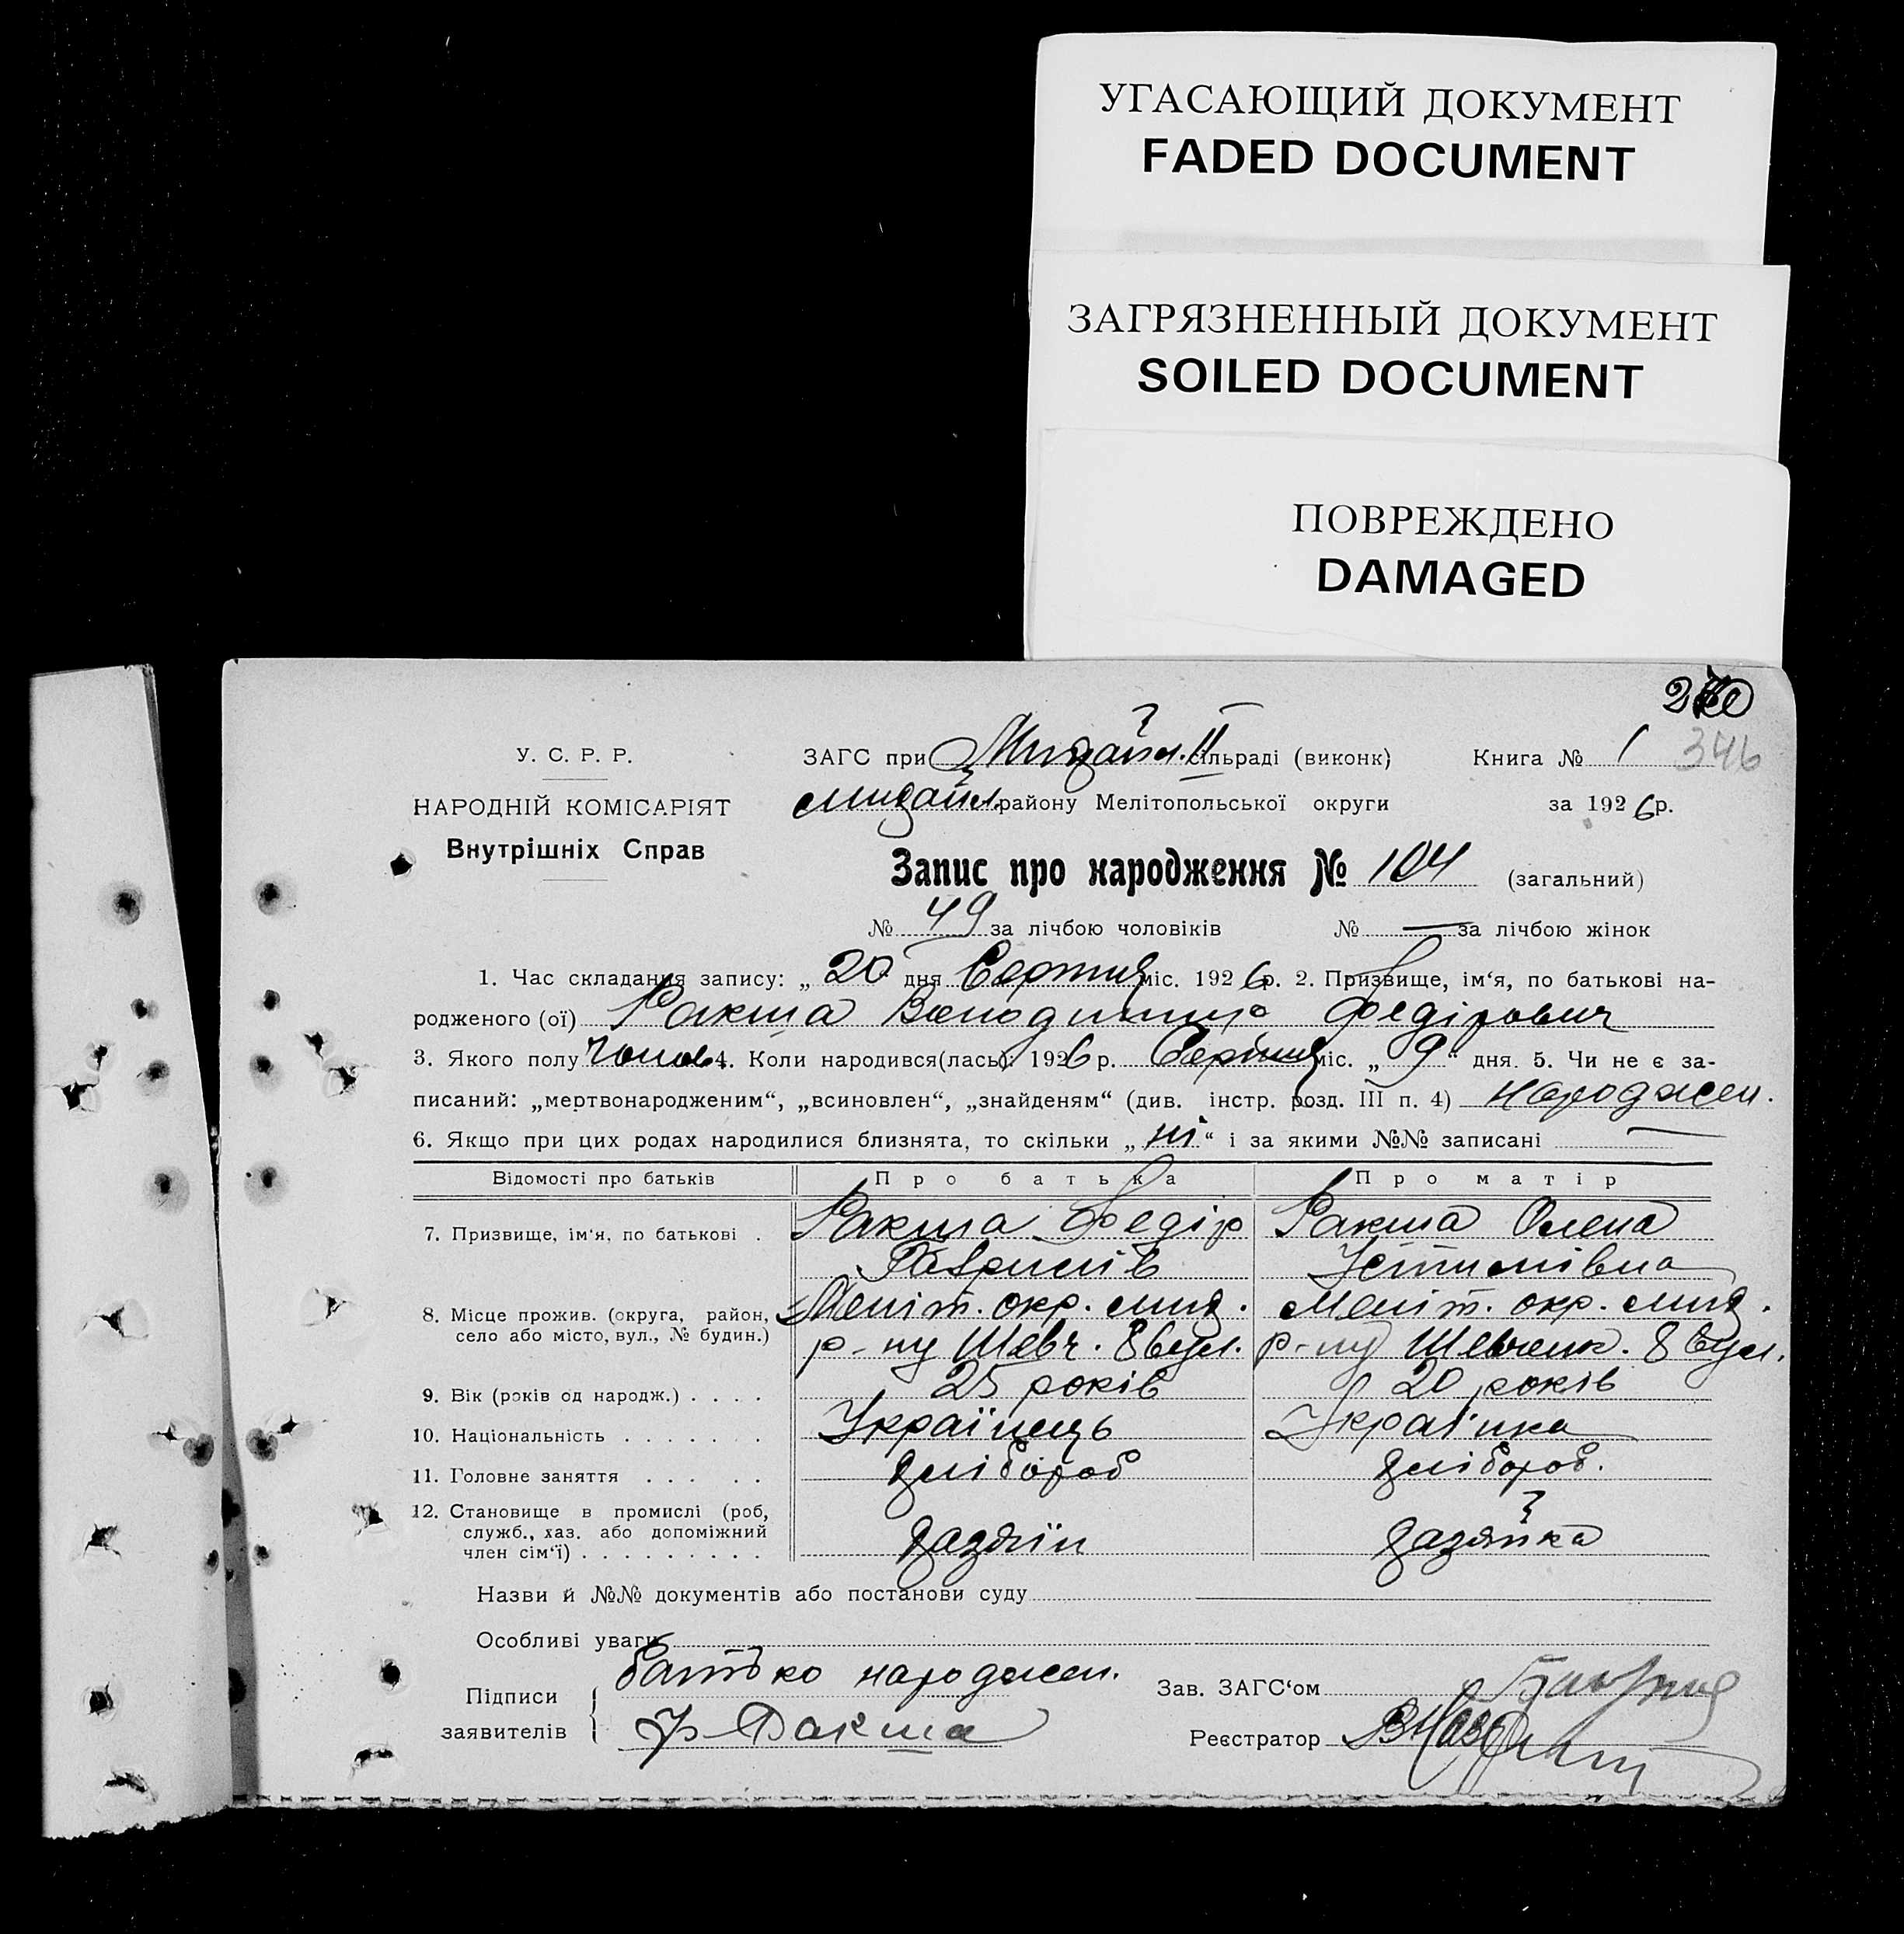 УГАСАЮЩИЙ ДОКУМЕНТ
FADED DOCUMENT
ЗАГРЯЗНЕННЫЙ ДОКУМЕНТ
SOILED DOCUMENT
ПОВРЕЖДЕНО
DAMAGED
346
У. С. Р. Р.
НАРОДНІЙ КОМІСАРІЯТ
Внутрішніх Справ
ЗАГС при Михайл. II сільраді (виконк) Книга № 1
Михайл. району Мелітопольської округи за 1926 р.
Запис про народження № 104 (загальний)
№ 49 за лічбою чоловіків № — за лічбою жінок
1. Час складання запису: „ 20 дня Серпня міс. 1926 р. 2. Призвище, ім‘я, по батькові на-
родженого (ої) Ракша Володимир Федірович
3. Якого полу чолов 4. Коли народився(лась): 1926 р. Серпня міс. „ 9 “ дня. 5. Чи не є за-
писаний: „мертвонародженим“, „всиновлен“, „знайденям“ (див. інстр. розд. III п. 4) народжен.
6. Якщо при цих родах народилися близнята, то скільки „ ні “ і за якими №№ записані —
Відомості про батьків Про батька Про матір
7. Призвище, ім‘я, по батькові . Ракша Федір Ракша Олена
Гаврилів Устимівна
8. Місце прожив. (округа, район, Меліт. окр. мих. Меліт. окр. мих.
село або місто, вул., № будин.) р-ну Шевч. 8 вул. р-ну Шевченк. 8 вул.
9. Вік (років од народж.) . . . . 25 років 20 років
10. Національність . . . . . . . Українець Українка
11. Головне заняття . . . . . хлібороб хлібороб.
12. Становище в промислі (роб,
служб., хаз. або допоміжний
член сім‘ї) . . . . . . . . . хазяїн хазяйка
Назви й №№ документів або постанови суду
Особливі уваги
Підписи батько народжен. Зав. ЗАГС‘ом
заявителів Ф Ракша Реєстратор